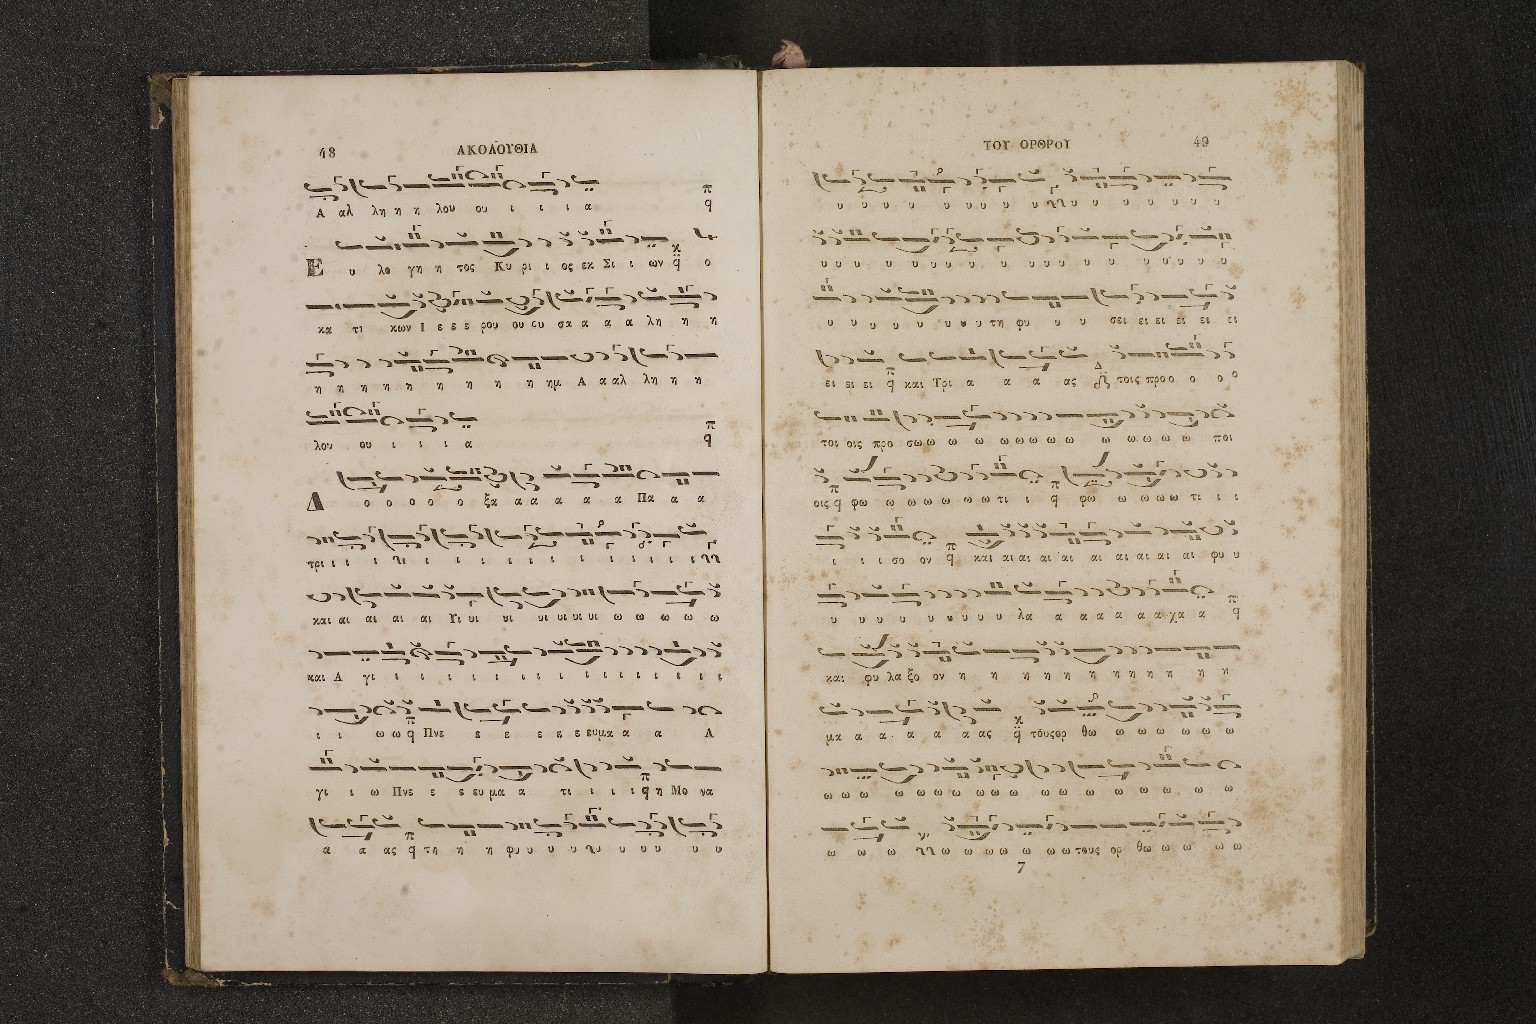 48 ΑΚΟΛΟΥΘΙΑ
Α αλ λη η η λου ου ι ι ι α
Ε υ λο γη η τος Κυ ρι ι ος εκ Σι ι ων ο
κα τι κων Ι ε ε ε ρου ου ου σα α α α λη η η
η η η η η η η η η ημ Α α αλ λη η η
λου ου ι ι ι α
Δ ο ο ο ο ο ξα α α α α α Πα α α
τρι ι ι ι ι ι ι ι ι ι ι ι ι ι ι ι
και αι αι αι αι Υι υι υι υι υι υι υι ω ω ω ω ω
και Α γι ι ι ι ι ι ι ι ι ι ι ι ι ι ι ι
ι ι ω ω Πνε ε ε ε ε ε ευμα α α Α
γι ι ω Πνε ε ε ευ μα α τι ι ι ι η Μο να
α α ας τη η η φυ υ υ υ υ υ υ υ υ υ
ΤΟΥ ΟΡΘΡΟΥ 49
υ υ υ υ υ υ υ υ υ υ υ υ υ υ υ υ υ
υ υ υ υ υ υ υ υ υ υ υ υ υ υ υ υ υ υ
υ υ υ υ υ υ υ υ υ τη φυ υ υ σει ει ει ει ει ει
ει ει ει και Τρι α α α ας τοις προ ο ο ο ο
τοι οις προ σω ω ω ω ω ω ω ω ω ω ω ω ω ω ποι
οις φω ω ω ω ω ω ω τι ι φω ω ω ω ω τι ι ι
ι ι ι σο ον και αι αι αι αι αι αι αι αι αι φυ υ
υ υ υ υ υ υ υ υ υ λα α α α α α α χα α
και φυ λα ξο ον η η η η η η η η η η η
μα α α α α α ας τους ορ θω ω ω ω ω ω ω
ω ω ω ω ω ω ω ω ω ω ω ω ω ω ω ω
ω ω ω ω ω ω ω ω ω ω τους ορ θω ω ω ω ω
7